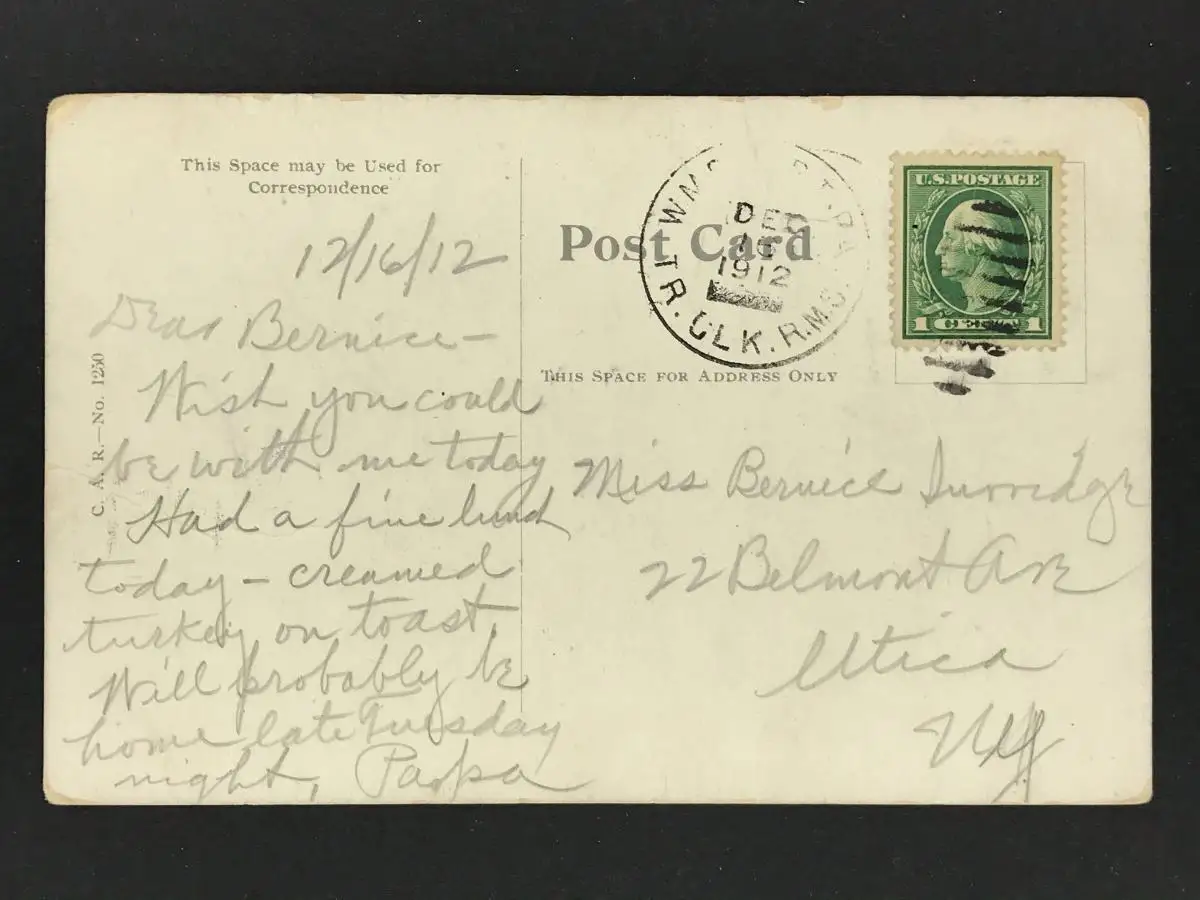 This Space may be Used for
Correspondence
12/16/12
Dear Bernice –
Wish you could
be with me today
Had a fine lunch
today – creamed
turkey on toast.
Will probably be
home late Tuesday
night, Papa
C. A. R.—No. 1250
Post Card
WMS P T. PA.
DEC
16
1912
TR. CLK. R.M.S.
U.S. POSTAGE
1 1
This Space for Address Only
Miss Bernice
22 Belmont Ave
Utica
NY